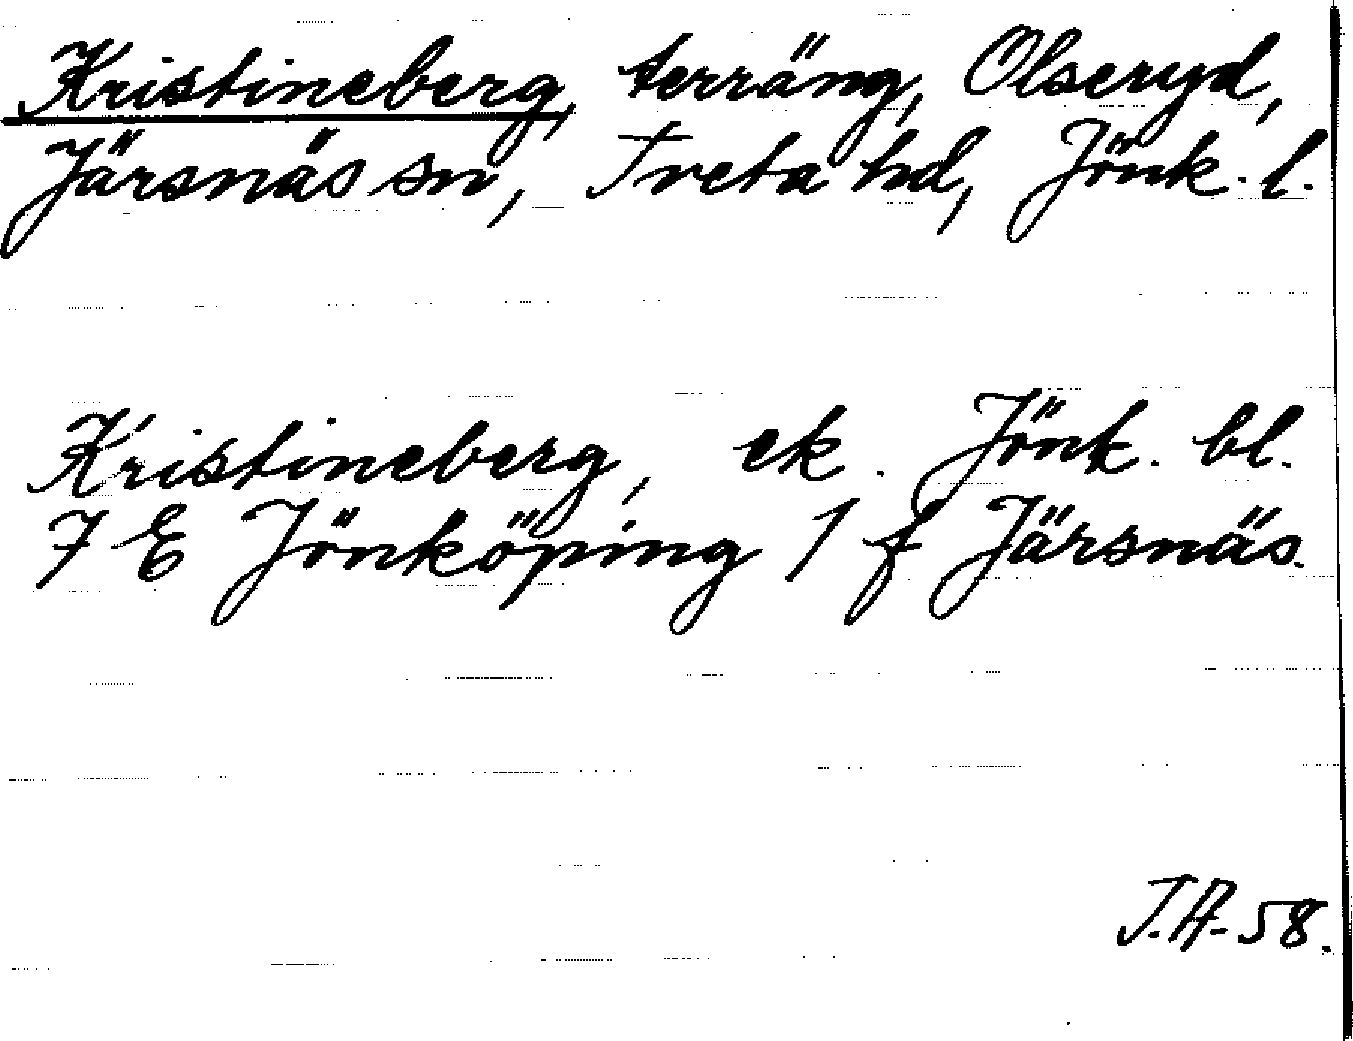 Kristineberg, terräng, Olseryd,
Järsnäs sn, Tveta hd, Jönk. l.
Kristineberg, ek. Jönk. bl.
7 E Jönköping 1 f Järsnäs.
T.A-58.